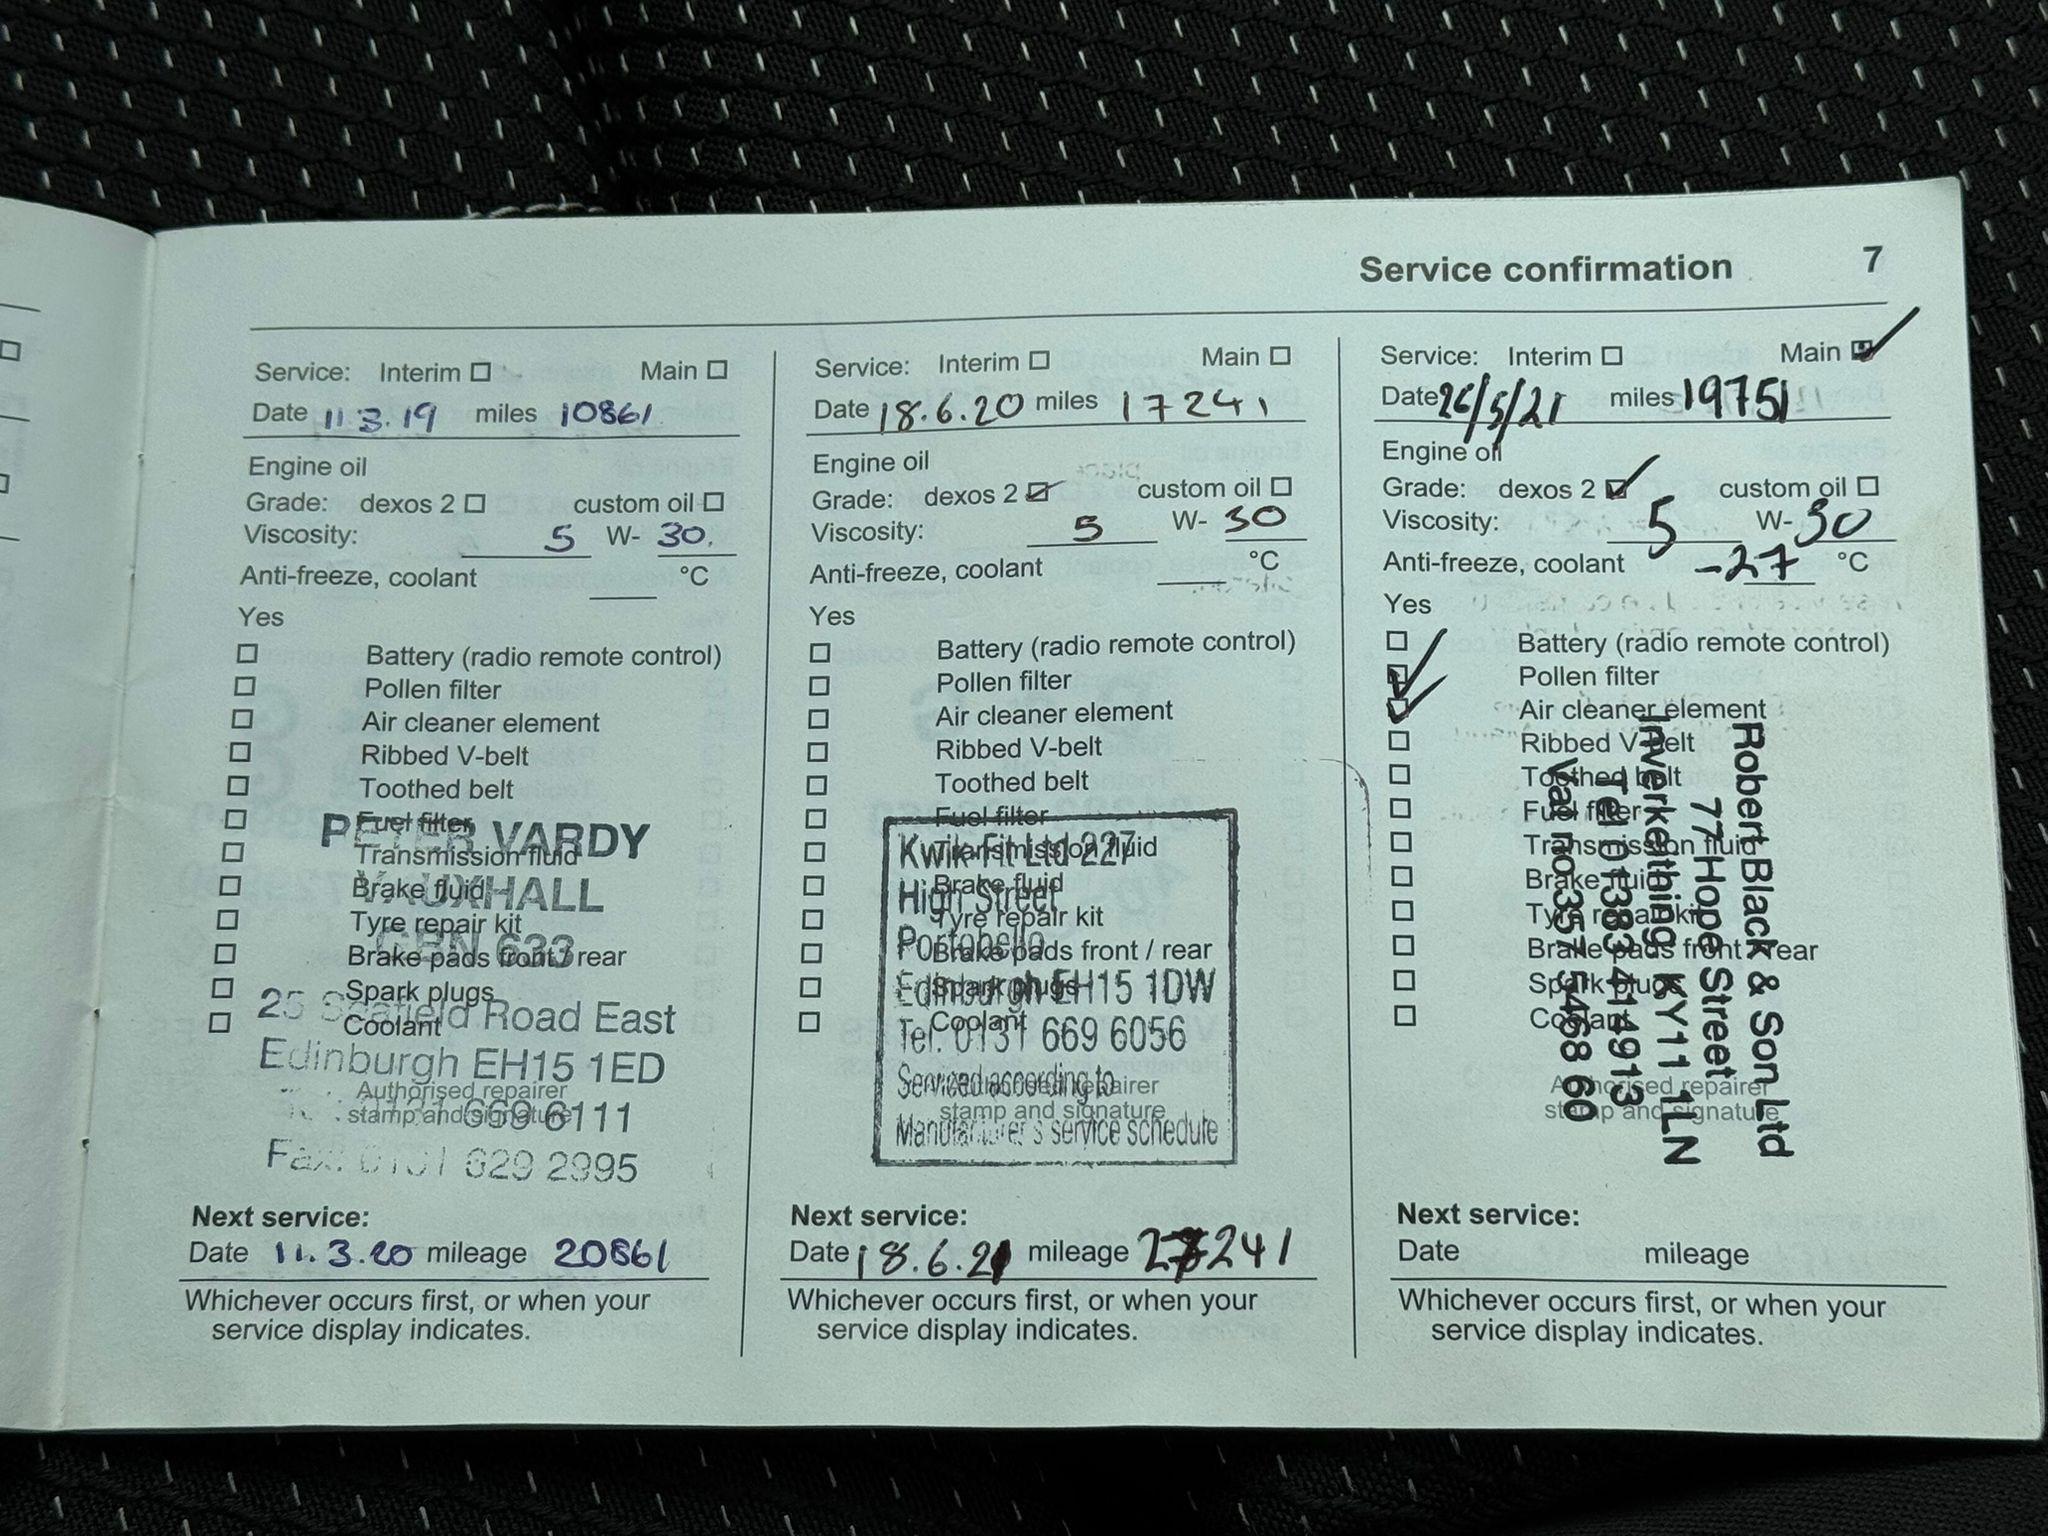 Service confirmation 7
Service: Interim Main
Date 11.3.19 miles 10861
Engine oil
Grade: dexos 2 custom oil
Viscosity: 5 W- 30.
Anti-freeze, coolant °C
Yes
Battery (radio remote control)
Pollen filter
Air cleaner element
Ribbed V-belt
Toothed belt
Fuel filter
Transmission fluid
Brake fluid
Tyre repair kit
Brake pads front / rear
Spark plugs
Coolant
PETER VARDY
VAUXHALL
CBN 633
25 Seafield Road East
Edinburgh EH15 1ED
0131 669 6111
Fax: 0131 629 2995
Authorised repairer
stamp and signature
Next service:
Date 11.3.20 mileage 20861
Whichever occurs first, or when your
service display indicates.
Service: Interim Main
Date 18.6.20 miles 17241
Engine oil
Grade: dexos 2 custom oil
Viscosity: 5 W- 30
Anti-freeze, coolant °C
Yes
Battery (radio remote control)
Pollen filter
Air cleaner element
Ribbed V-belt
Toothed belt
Fuel filter
Transmission fluid
Brake fluid
Tyre repair kit
Brake pads front / rear
Spark plugs
Coolant
Kwik-Fit Ltd 227
High Street
Portobello
Edinburgh EH15 1DW
Tel. 0131 669 6056
Serviced according to
Manufacturer's service schedule
Authorised repairer
stamp and signature
Next service:
Date 18.6.21 mileage 27241
Whichever occurs first, or when your
service display indicates.
Service: Interim Main
Date 26/5/21 miles 19751
Engine oil
Grade: dexos 2 custom oil
Viscosity: 5 W- 30
Anti-freeze, coolant -27 °C
Yes
Battery (radio remote control)
Pollen filter
Air cleaner element
Ribbed V-belt
Toothed belt
Fuel filter
Transmission fluid
Brake fluid
Tyre repair kit
Brake pads front / rear
Spark plugs
Coolant
Robert Black & Son Ltd
77 Hope Street
Inverkeithing KY11 1LN
Tel 01383 414913
Vat no 357 5468 60
Authorised repairer
stamp and signature
Next service:
Date mileage
Whichever occurs first, or when your
service display indicates.